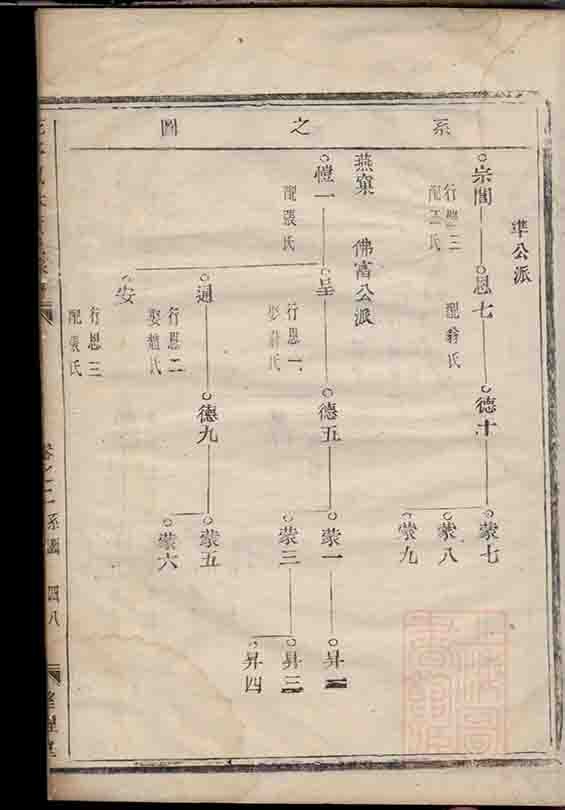 系之圖
準公派
宗閣
行聖三
配王氏
恩七
配翁氏
德十
蒙七
蒙八
蒙九
燕窠 佛富公派
愷一
配張氏
呈
行恩一
娶翁氏
德五
蒙一
蒙三
昇二
昇三
昇四
通
行恩二
娶趙氏
德九
蒙五
蒙六
安
行恩三
配張氏
卷之二 系圖 四八